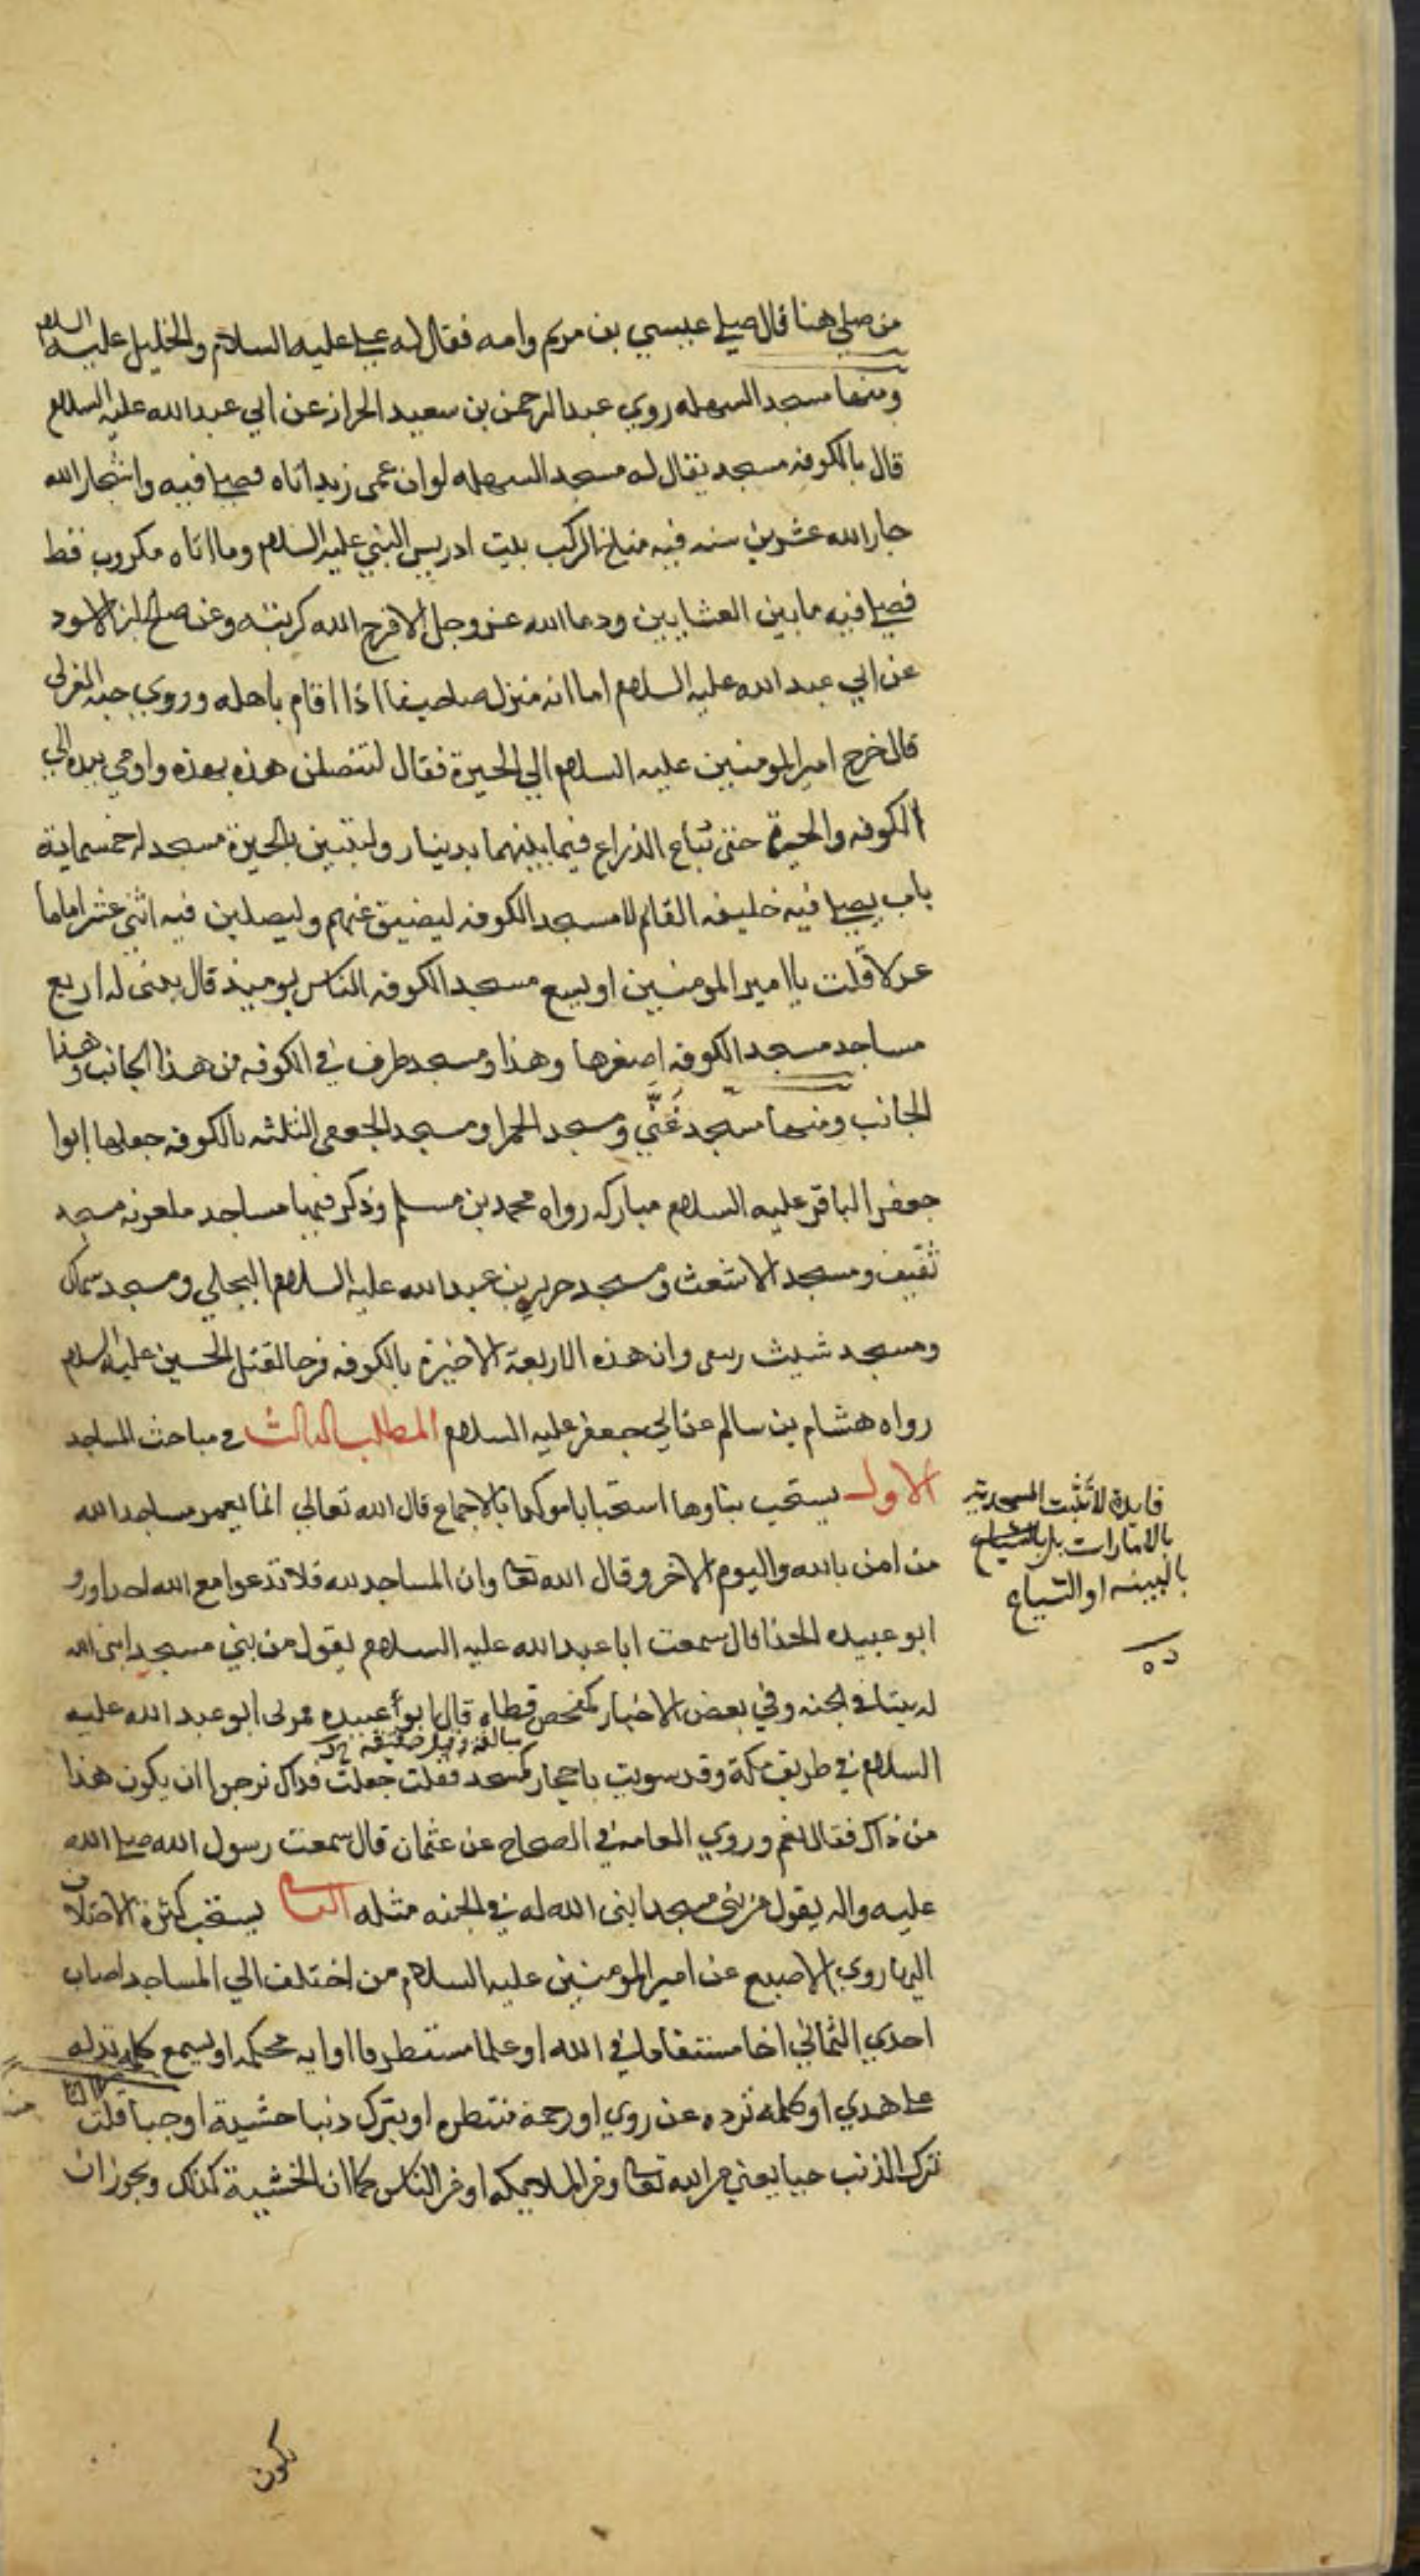 من صلي هنا قال صلي عيسي بن مريم وامه فقال له علي عليه السلام والخليل عليه السلام
ومنها مسجد السهله روي عبد الرحمن بن سعيد الخراز عن ابي عبد الله عليه السلام
قال بالكوفه مسجد يقال له مسجد السهله لو ان عمي زيد اتاه فصلي فيه واستجار الله
جار الله عشرين سنه فيه مناخ الراكب بيت ادريس النبي عليه السلام وما اتاه مكروب قط
فصلي فيه ما بين العشايين ودعا الله عز وجل الا فرج الله كربته وعن صالح ابن الاسود
عن ابي عبد الله عليه السلام اما انه منزل صاحبنا اذا قام باهله وروي حبه العرني
قال خرج امير المومنين عليه السلام الي الحيرة فقال لتتصلن هذه بهذه واومي بيده الي
الكوفه والحيرة حتي تباع الذراع فيما بينهما بدينار وليبنين بالحيرة مسجد له خمسماية
باب يصلي فيه خليفه القائم لان مسجد الكوفه ليضيق عنهم وليصلين فيه اثني عشر اماما
عدلا قلت يا امير المومنين او يسع مسجد الكوفه الناس يوميذ قال يبني له اربع
مساجد مسجد الكوفه اصغرها وهذا ومسجد طرف في الكوفه من هذا الجانب وهذا
الجانب ومنها مسجد غني ومسجد الحمرا ومسجد الجعفي الثلثه بالكوفه جعلها ابوا
جعفر الباقر عليه السلام مباركه رواه محمد بن مسلم وذكر فيها مساجد ملعونه مسجد
ثقيف ومسجد الاشعث ومسجد جرير بن عبد الله عليه السلام البجلي ومسجد سماك
ومسجد شبث ربعي وان هذه الاربعة الاخيرة بالكوفه فرحا لقتل الحسين عليه السلام
رواه هشام بن سالم عن ابي جعفر عليه السلام المطلب الثالث في مباحث المساجد
الاول يستحب بناوها استحبابا موكدا بالاجماع قال الله تعالي انما يعمر مساجد الله
من امن بالله واليوم الاخر وقال الله تعا وان المساجد لله فلا تدعوا مع الله احدا ورو
ابو عبيده الحذا قال سمعت ابا عبد الله عليه السلام يقول من بني مسجدا بني الله
له بيتا في الجنه وفي بعض الاخبار كمفحص قطاه قال ابو عبيده فمر بي ابو عبد الله عليه
السلام في طريق مكة وقد سويت باحجار كمسجد فقلت جعلت فداك نرجوا ان يكون هذا
من ذاك فقال نعم وروي العامه في الصحاح عن عثمان قال سمعت رسول الله صلي الله
عليه واله يقول من بني مسجدا بني الله له في الجنه مثله الثاني يستحب كثرة الاختلاف
اليها روي الاصبع عن امير المومنين عليه السلام من اختلف الي المساجد اصاب
احدي الثماني اخا مستفادا في الله او علما مستطرفا او ايه محكمه او يسمع كلمه تدله
علي هدي او كلمه ترده عن ردي او رحمة منتظره او يترك ذنبا خشية او حيا قلت
ترك الذنب حيا يعني من الله تعا ومن الملايكه او من الناس كما ان الخشية كذلك ويجوز ان
فايدة لا تثبت المسجدية
بالامارات بل
بالبينه او الشياع
يكون